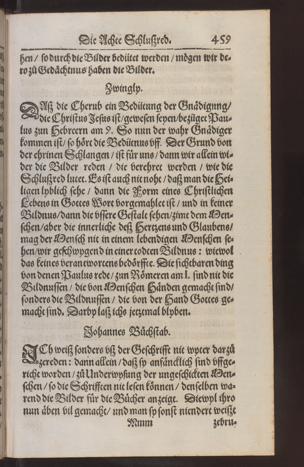 Die Achte Schlußred. 459
hen/ so durch die Bilder bedütet werden/ mögen wir de-
ro zů Gedächtnus haben die Bilder.
Zwingly.
Daß die Cherub ein Bedütung der Gnädigung/
die Christus Jesus ist/ gewesen seyen/ bezüget Pau-
lus zun Hebreern am 9. So nun der wahr Gnädiger
kommen ist/ so hört die Bedütnus uff. Der Grund von
der ehrinen Schlangen/ ist für uns/ dann wir allein wi-
der die Bilder reden/ die verehret werden/ wie die
Schlußred lutet. Es ist auch nit noht/ daß man die Hei-
ligen lyblich sehe/ dann die Form eines Christlichen
Lebens in Gottes Wort vorgemahlet ist/ und in keiner
Bildnus/ dann die üssere Gestalt sehen/ zimt dem Men-
schen/ aber die innerliche deß Hertzens und Glaubens/
mag der Mensch nit in einem lebendigen Menschen se-
hen/ wir geschwygend in einer todten Bildnus: wiewol
das keines verantwortens bedörffte. Die sichtbaren ding
von denen Paulus redt/ zun Römeren am 1. sind nit die
Bildnussen/ die von Menschen Händen gemacht sind/
sonders die Bildnussen/ die von der Hand Gottes ge-
macht sind. Darby laß ichs jetzmal blyben.
Johannes Bůchstab.
Ich weiß sonders uß der Geschrifft nit wyter darzů
zereden: dann allein/ daß sy anfäncklich sind uffge-
richt worden/ zů Underwysung der ungeschickten Men-
schen/ so die Schrifften nit lesen können/ denselben wa-
rend die Bilder für die Bücher anzeigt. Diewyl ihro
nun aben vil gemacht/ und man sy sonst niendert weißt
Mmm zebru-